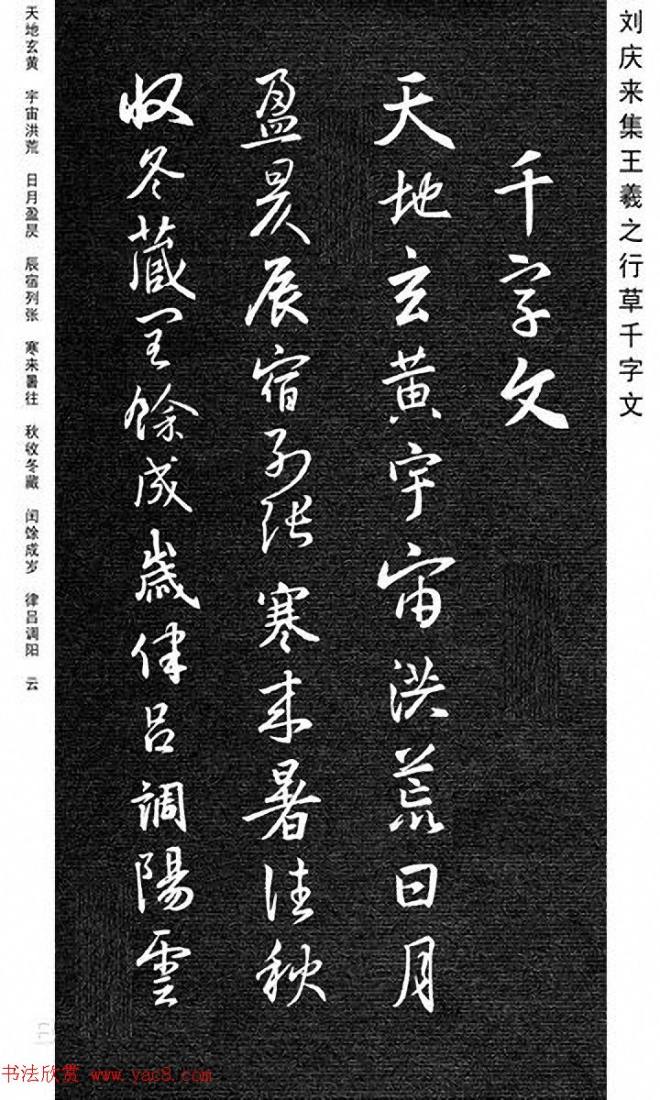 刘庆来集王羲之行草千字文
千字文
天地玄黄宇宙洪荒日月
盈昃辰宿列張寒来暑往秋
收冬藏閏餘成歲律吕調陽雲
天地玄黄 宇宙洪荒 日月盈昃 辰宿列张 寒来暑往 秋收冬藏 闰馀成岁 律吕调阳 云
书法欣赏 www.yac8.com